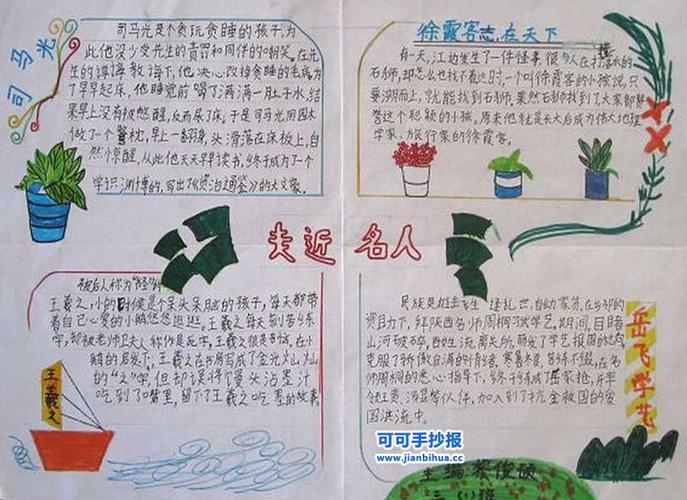 司马光
司马光是个贪玩贪睡的孩子,为
此他没少受先生的责罚和同伴的嘲笑。在先
生的谆谆教诲下,他决心改掉贪睡的毛病,为
了早早起床,他睡觉前喝了满满一肚子水,结
果早上没有被憋醒,反而尿了床,于是司马光用圆木
做了一个警枕,早上一翻身,头滑落在床板上,自
然惊醒,从此他天天早读书,终于成为了一个
学识渊博的,写出《资治通鉴》的大文豪。
徐霞客志在天下
有一天,江边发生了一件怪事,很多人在打
石狮,却怎么也找不着,这时,一个叫徐霞客的小孩说,只
要溯而上,就能找到石狮,果然石狮找到了大家都夸
誉这个聪颖的小孩,原来他就是长大后成为伟大地理
学家、旅行家的徐霞客。
走近名人
被后人称为
王羲之,小的时候是个呆头呆脑的孩子,每天都带
着自己心爱的小鹅悠悠逛逛。王羲之每天刻苦练
字,却被老师卫夫人称作是死字,王羲之很是苦恼,在小
鹅的启发下,王羲之在书房写成了金光灿灿
的"之"字,但却误将馒头沾墨汁
吃到了嘴里,留下了王羲之吃墨的故事。
王羲之
岳飞学艺
民族英雄岳飞生逢乱世,自幼家贫,在乡邻的
资助下,拜陕西名师周桐习武学艺,期间,目睹
山河破碎,百姓流离失所,萌发了学艺报国的志向
克服了骄傲自满的情绪。寒暑冬夏,苦练不缀,在名
师周桐的悉心指导下,终于练成了岳家枪,并率
领王贵,汤显等伙伴,加入到了抗金救国的爱
国洪流中。
可可手抄报
www.jianbihua.cc
主编:蔡俊硕
三(1)班